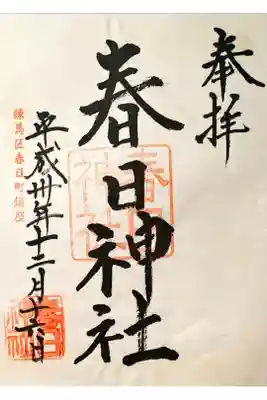 奉拝
春日神社
春日神社
平成卅年十二月十六日
練馬区春日町鎮座